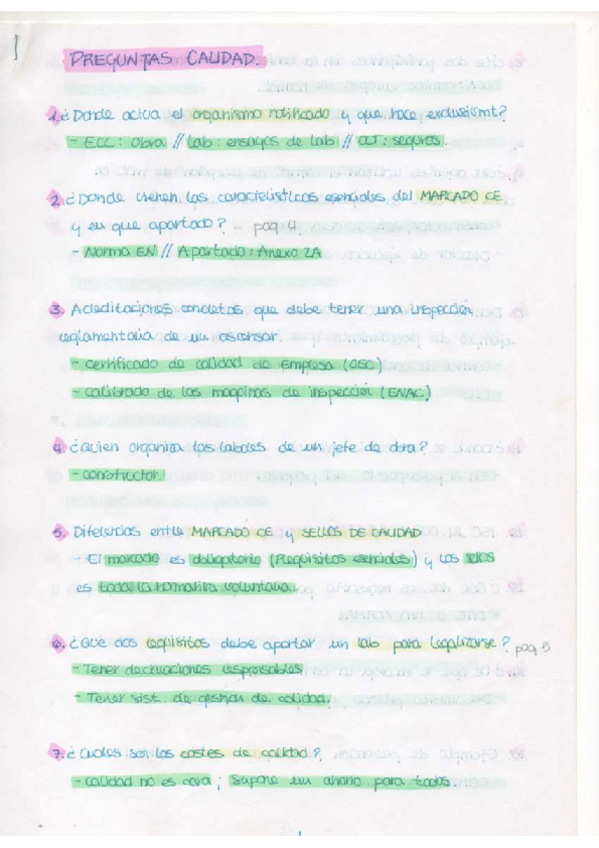 PREGUNTAS: CALIDAD.
1. ¿Donde actua el organismo notificado y que hace exclusivamt?
- ECC: Obra // Lab: ensayos de lab // OCT: seguros.
2. ¿Donde vienen las caracteristicas esenciales del MARCADO CE
y en que apartado? - pag 4.
- Norma EN // Apartado: Anexo ZA
3. Acreditaciones concretas que debe tener una inspección
reglamentaria de un ascensor.
- certificado de calidad de Empresa
- calibrado de las maquinas de inspección (ENAC)
4. ¿Quien organiza las labores de un jefe de obra?
- constructor.
5. Diferencias entre MARCADO CE y SELLOS DE CALIDAD
- El marcado es obligatorio (Requisitos esenciales) y los sellos
es toda la normativa voluntaria.
6. ¿Que dos requisitos debe aportar un lab para legalizarse? pag 5
- Tener declaraciones responsables
- Tener sist. de gestion de calidad.
7. ¿Cuales son los costes de calidad?
- calidad no es cara; supone un ahorro para todos.